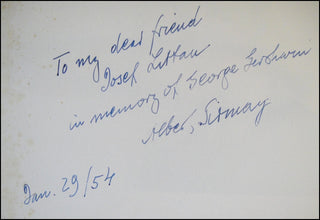 To my dear friend
Josef Littau
in memory of George Gershwin
Albert Sirmay
Jan. 29/54